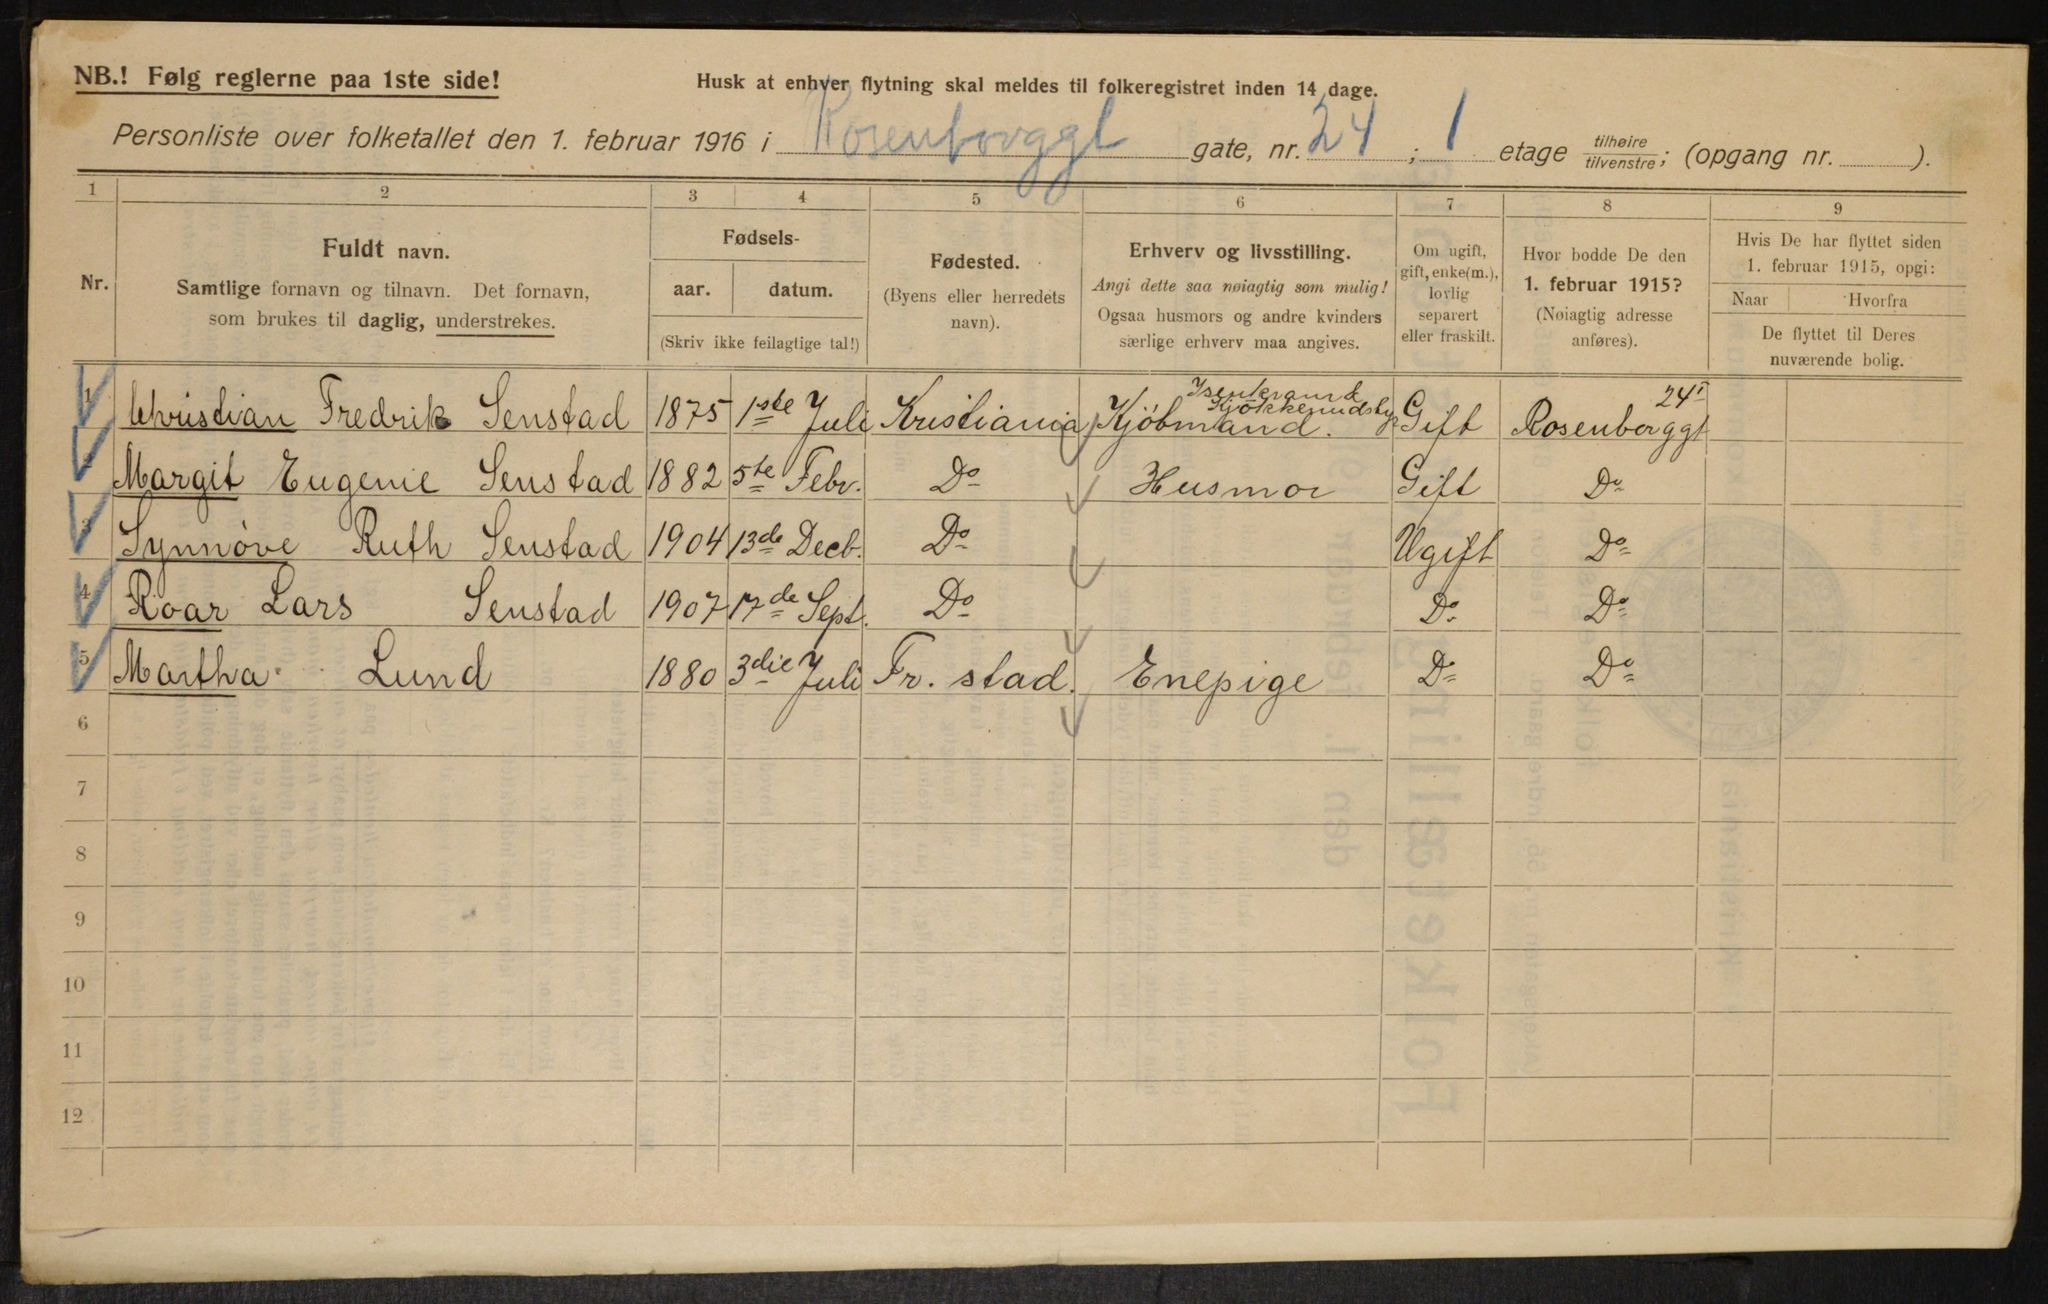 NB.! Følg reglerne paa 1ste side!
Husk at enhver flytning skal meldes til folkeregistret inden 14 dage.
Personliste over folketallet den 1. februar 1916 i Rosenborggt gate, nr. 24 ; 1 etage tilhøire/tilvenstre; (opgang nr. ).
1 2 3 4 5 6 7 8 9
Nr.
Fuldt navn.
Samtlige fornavn og tilnavn. Det fornavn,
som brukes til daglig, understrekes.
Fødsels-
aar. datum.
(Skriv ikke feilagtige tal!)
Fødested.
(Byens eller herredets
navn).
Erhverv og livsstilling.
Angi dette saa nøiagtig som mulig!
Ogsaa husmors og andre kvinders
særlige erhverv maa angives.
Om ugift,
gift, enke(m.),
lovlig
separert
eller fraskilt.
Hvor bodde De den
1. februar 1915?
(Nøiagtig adresse
anføres).
Hvis De har flyttet siden
1. februar 1915, opgi:
Naar Hvorfra
De flyttet til Deres
nuværende bolig.
1 Christian Fredrik Senstad 1875 1ste Juli Kristiania Kjøbmand. Gift Rosenborggt 24 I
2 Margit Eugenie Senstad 1882 5te Febr. Do Husmor Gift Do
3 Synnøve Ruth Senstad 1904 13de Decb. Do Ugift Do
4 Roar Lars Senstad 1907 17de Sept. Do Do Do
5 Martha Lund 1880 3die Juli Fr. stad. Enepige Do Do
6
7
8
9
10
11
12